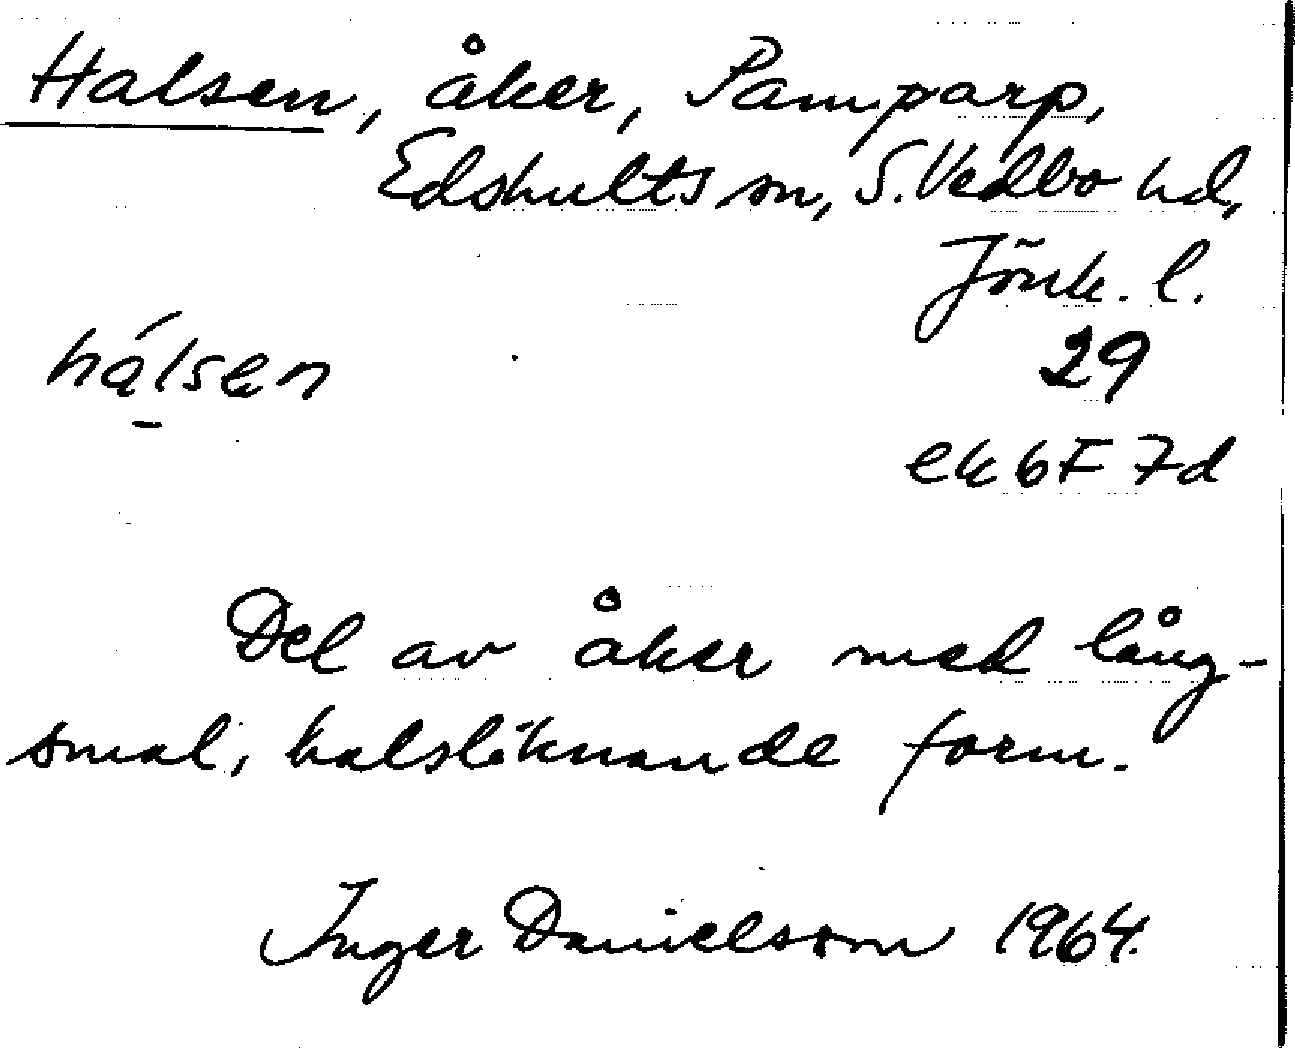 Halsen, åker, Pamparp,
Edshults sn, S. Vedbo hd,
Jönk. l.
hálsen
29
ek 6F 7d
Del av åker med lång-
smal, halsliknande form.
Inger Danielsson 1964.